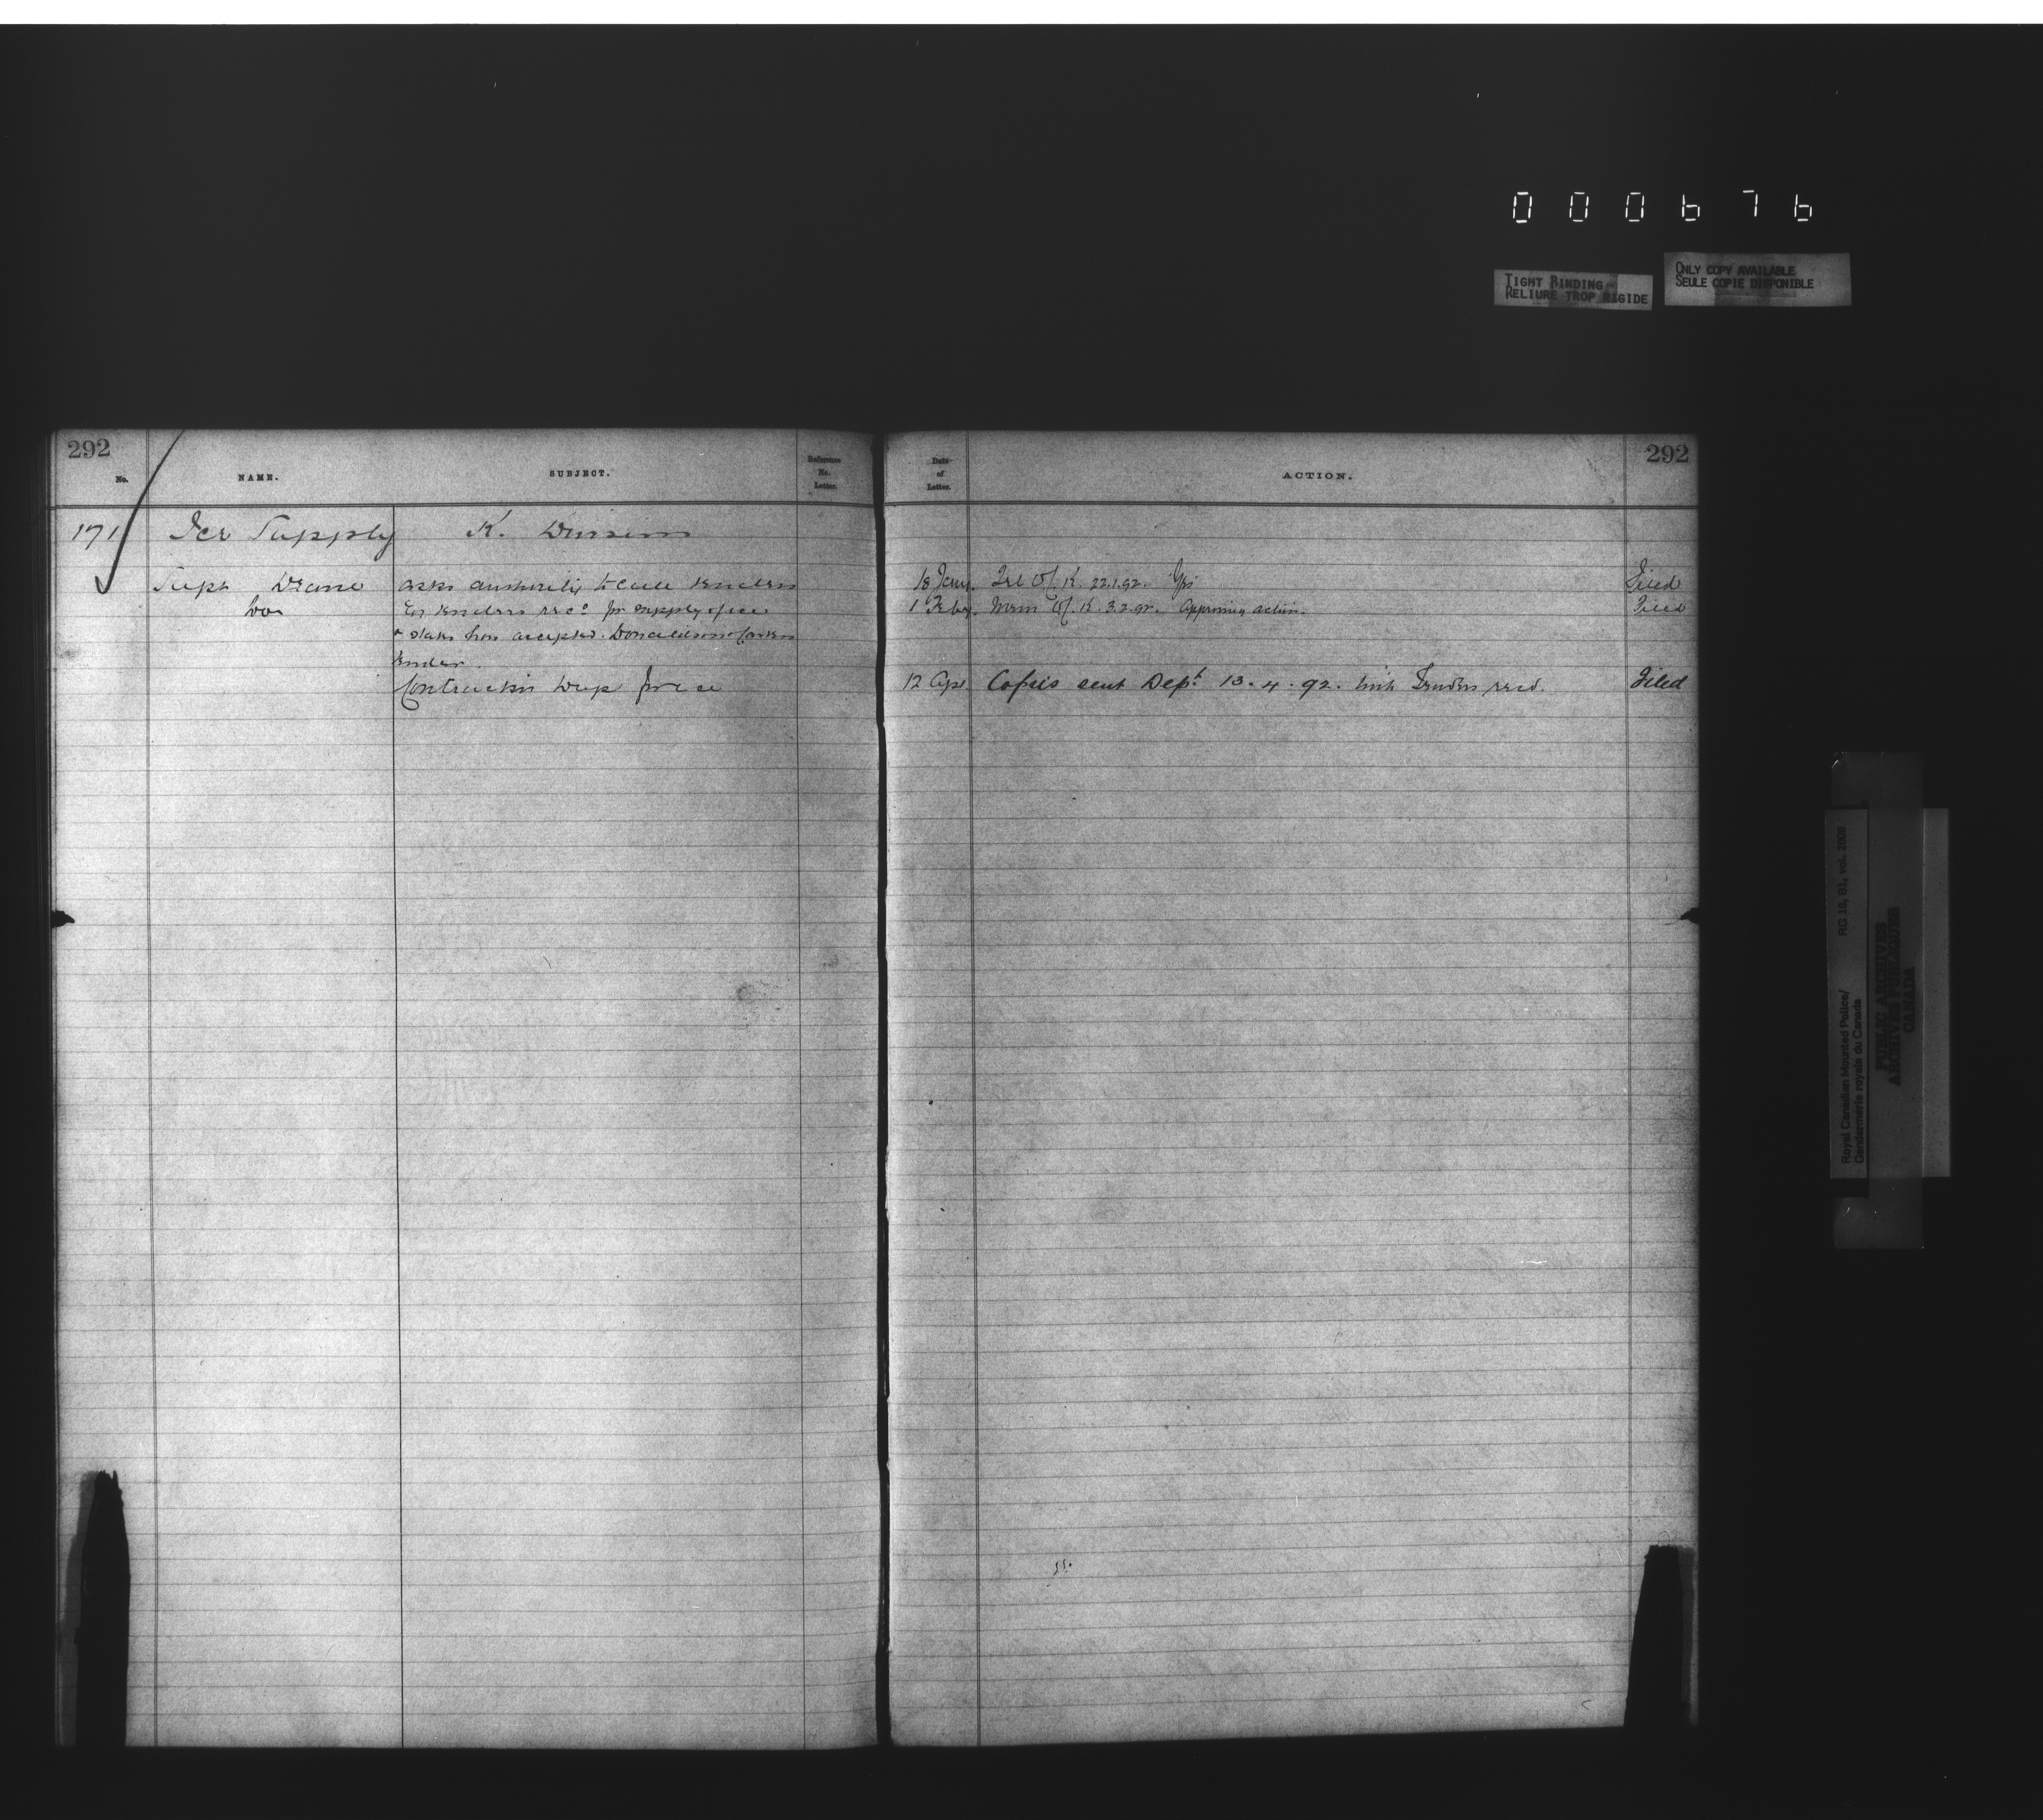 000676
TIGHT BINDING
RELIURE TROP RIGIDE
ONLY COPY AVAILABLE
SEULE COPIE DISPONIBLE
292
No.
NAME.
SUBJECT.
Reference
No.
Letter.
Date
of
Letter.
ACTION.
292
171 Ice Supply K. Division
Supt Deane asks authority to call tenders 18 Jany. Tel Of. K. 22.1.92. Yes Filed
Do tenders recd for supply of ice 1 Feby. Mem Of. K. 3.2.92. Approving action. Filed
& states has accepted Donaldson
tender.
Contract in dup for ice 12 Apl. Copies sent Dept 13.4.92. with Tenders recd. Filed
Royal Canadian Mounted Police/
Gendarmerie royale du Canada
RG 18, B1, vol. 2005
PUBLIC ARCHIVES
ARCHIVES PUBLIQUES
CANADA